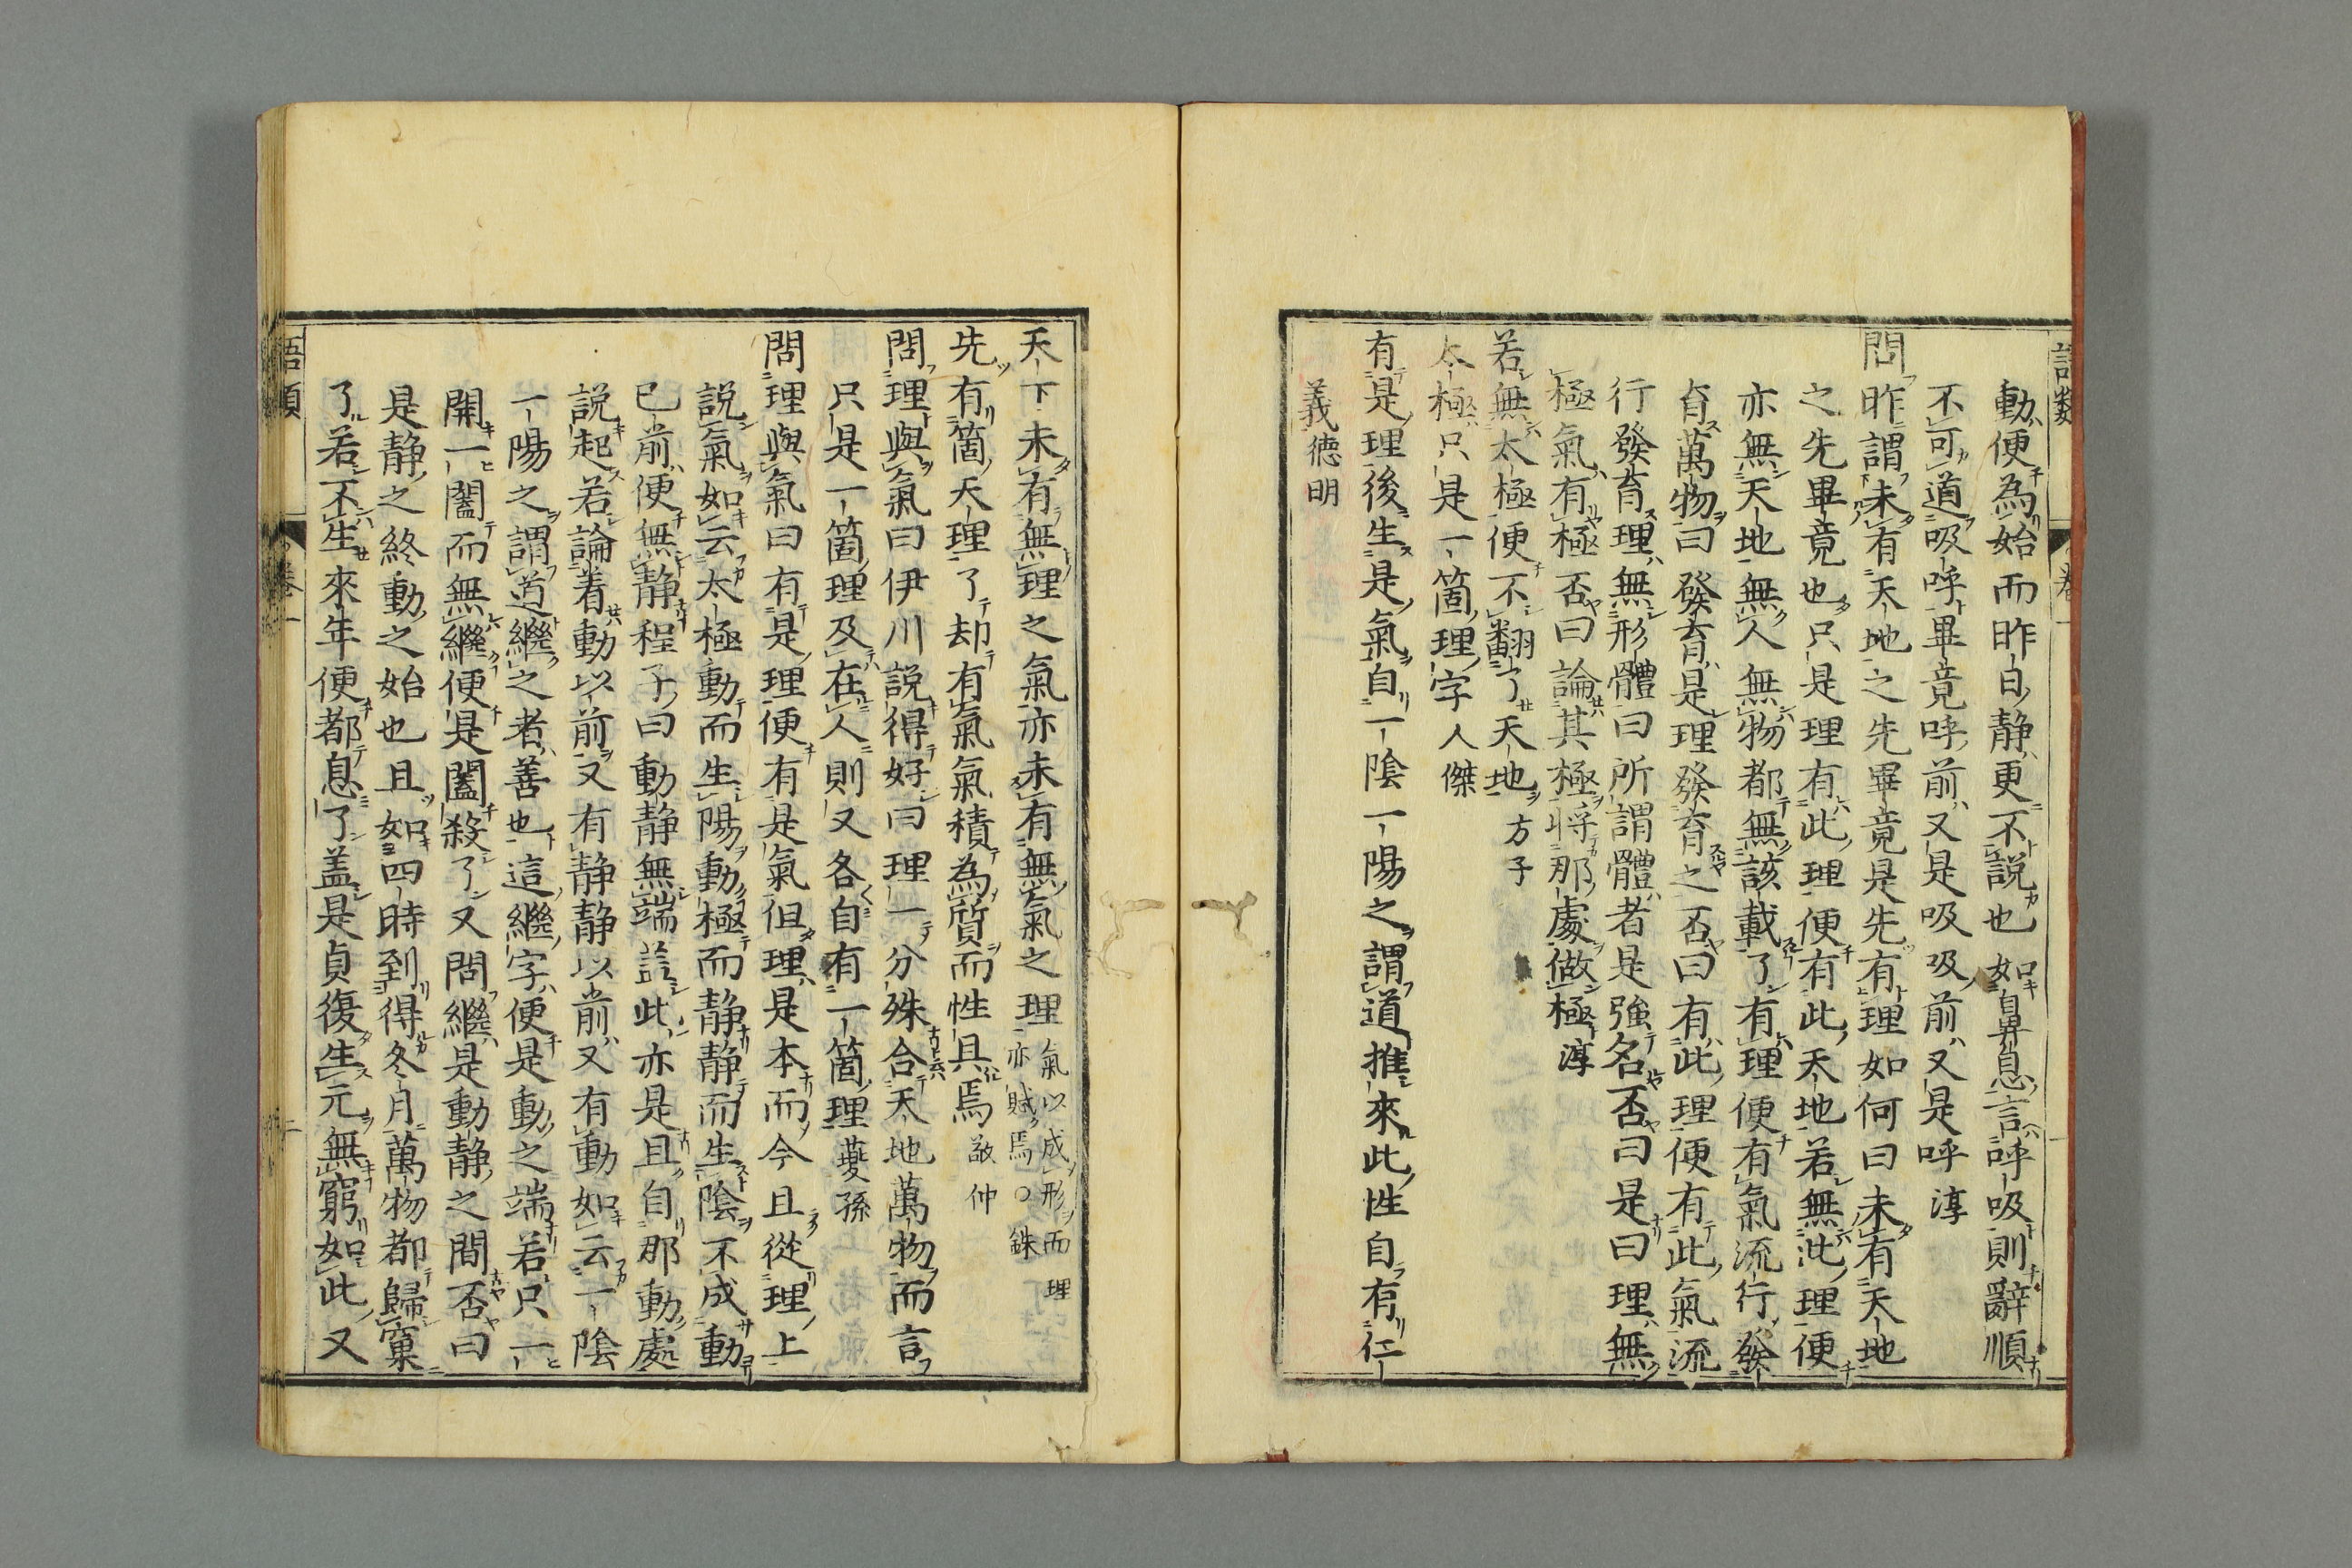 語類 卷一
動便為始而昨日静更不説也如鼻息言呼吸則辭順
不可道吸呼畢竟呼前又是吸吸前又是呼淳
問昨謂未有天地之先畢竟是先有理如何曰未有天地
之先畢竟也只是理有此理便有此天地若無此理便
亦無天地無人無物都無該載了有理便有氣流行發
育萬物曰發育是理發育之否曰有此理便有此氣流
行發育理無形體曰所謂體者是強名否曰是曰理無
極氣有極否曰論其極將那處做極淳
若無太極便不翻了天地方子
太極只是一箇理字人傑
有是理後生是氣自一陰一陽之謂道推來此性自有仁
義德明
天下未有無理之氣亦未有無氣之理氣以成形而理
亦賦焉○銖
先有箇天理了却有氣氣積為質而性具焉敬仲
問理與氣曰伊川説得好曰理一分殊合天地萬物而言
只是一箇理及在人則又各自有一箇理夔孫
問理與氣曰有是理便有是氣但理是本而今且從理上
説氣如云太極動而生陽動極而静静而生陰不成動
已前便無静程子曰動静無端盖此亦是且自那動處
説起若論着動以前又有静静以前又有動如云一陰
一陽之謂道繼之者善也這繼字便是動之端若只一
開一闔而無繼便是闔殺了又問繼是動静之間否曰
是静之終動之始也且如四時到得冬月萬物都歸窠
了若不生來年便都息了盖是貞復生元無窮如此又
語類 卷一 二